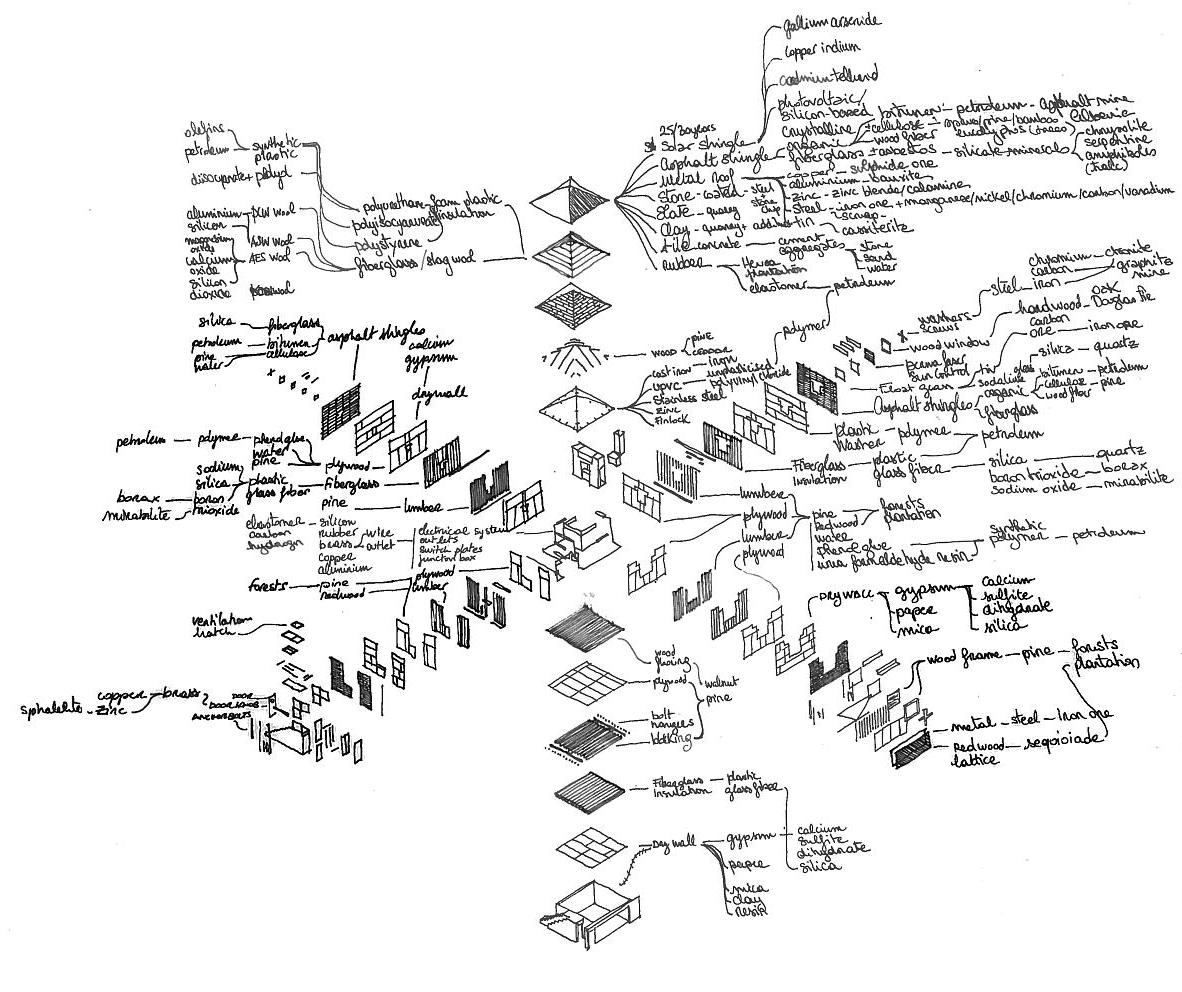 gallium arsenide
copper indium
photovoltaic/
silicon-based
crystalline
25/30years
Solar shingle
organic
bitumen - petroleum - asphalt mine
+cellulose - spruce/pine/bamboo
wood fiber
eucalyptus (trees)
Asphalt shingle
fiberglass + asbestos - silicate minerals
chrysolite
serpentine
amphiboles
(talc)
Metal roof
copper - sulphide ore
aluminium - bauxite
zinc - zinc blende/calamine
Steel - iron ore + manganese/nickel/chromium/carbon/vanadium
scrap
tin - cassiterite
Stone-coated - steel
+
stone
chip
Slate - quarry
Clay - quarry +
concrete - cement
aggregates
stone
sand
water
rubber
Hevea
plantation
elastomer - petroleum
polymer
olefins
petroleum - synthetic
plastic
diisocyanate + polyol
polyurethane foam plastic
polyisocyanurate insulation
polystyrene
fiberglass/slag wool
aluminium
silicon
magnesium
oxide
calcium
oxide
silicon
dioxide
AES Wool
silica - fiberglass
petroleum - bitumen
pine - cellulose
water
asphalt shingles
calcium
gypsum
drywall
wood
pine
cast iron - iron
upvc - unplasticized
polyvinyl chloride
Stainless steel
zinc
Finlock
washers
screws
steel
chromium - chromite
carbon - graphite
mine
iron
wood window
hardwood - oak
Douglas fir
carbon
ore - iron ore
sun control
Float glass
tin
silica - quartz
soda lime
glass
organic
bitumen - petroleum
cellulose - pine
wood fiber
Asphalt shingles
fiberglass
plastic
washer
polymer - petroleum
Fiberglass
Insulation
plastic
glass fiber
silica - quartz
boron trioxide - borax
sodium oxide - mirabilite
petroleum - polymer - phenol glue
water
pine
plywood
sodium
silica
boron
trioxide
plastic
glass fiber
Fiberglass
borax
mirabilite
pine - lumber
elastomer
carbon
hydrogen
silicon
rubber
brass
copper
aluminium
wire
outlet
electrical system
outlets
switch plates
junction box
forests - pine
redwood
plywood
lumber
lumber
plywood
lumber
plywood
pine
Redwood
water
phenol glue
urea formaldehyde resin
forests
plantation
synthetic
polymer - petroleum
DRYWALL
gypsum
paper
mica
calcium
sulfite
dihydrate
silica
wood frame - pine - forests
plantation
metal - steel - iron ore
Redwood
lattice
ventilation
hatch
sphalelite - zinc
copper - brass
DOOR
wood
flooring
plywood
bolt
hangers
blocking
walnut
pine
Fiberglass
Insulation
plastic
glass fiber
Dry wall
gypsum
calcium
sulfite
dihydrate
silica
paper
mica
clay
resin